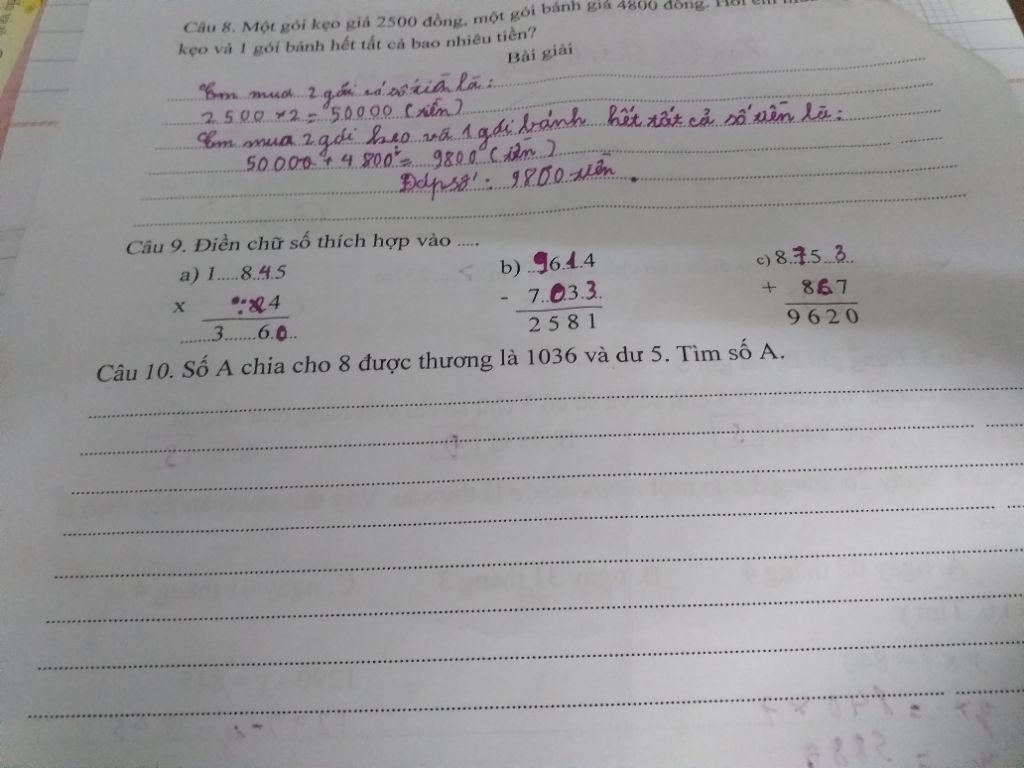 Câu 8. Một gói kẹo giá 2500 đồng, một gói bánh giá 4800 đồng. Hỏi em mua
kẹo và 1 gói bánh hết tất cả bao nhiêu tiền?
Bài giải
Em mua 2 gói số tiền là:
2500 × 2 = 50000 (tiền)
Em mua 2 gói kẹo và 1 gói bánh hết tất cả số tiền là:
50000 + 4800 = 9800 (tiền)
Đáp số: 9800 tiền.
Câu 9. Điền chữ số thích hợp vào .....
a) 1....8.4.5 b) ..96.1.4 c) 8.75..3..
x 4 - 7..03.3. + 867
......3.......6.0.. 2581 9620
Câu 10. Số A chia cho 8 được thương là 1036 và dư 5. Tìm số A.